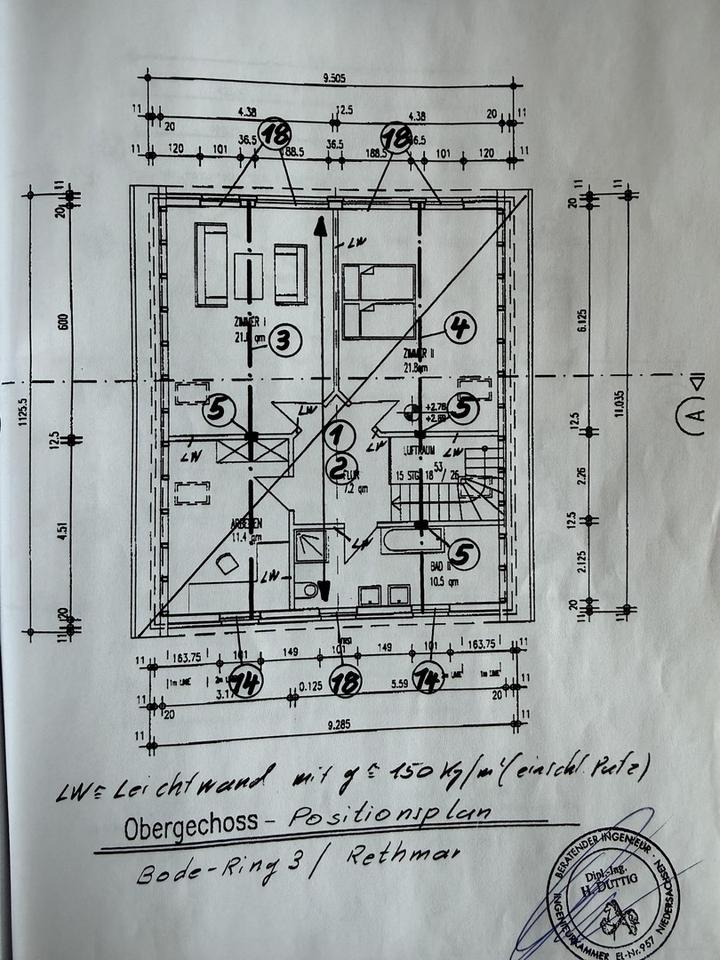 9.505
11 20 4.38 12.5 4.38 20 11
18 18
11 120 101 36.5 188.5 36.5 188.5 36.5 101 120 11
11 20 600 12.5 4.51 20 11
1125.5
20 11 6.125 12.5 2.26 12.5 2.125 20 11
11.035
A
LW
ZIMMER I
3
4
ZIMMER II
21.8qm
5
5
+2.78
LW
LW
LW
1
LUFTRAUM
2
FLUR
7.2 qm
15 STG 18 53/ 26
ARBEITEN
11.4 qm
LW
5
BAD II
10.5 qm
LW
FIRST
11 163.75 101 149 101 149 101 163.75 11
14 18 14
11 20 3.17 0.125 5.59 20 11
11 9.285 11
LW= Leichtwand mit g ≤ 150 Kg/m² (einschl. Putz)
Obergechoss - Positionsplan
Bode-Ring 3 / Rethmar
BERATENDER INGENIEUR
Dipl.-Ing.
H. DUTTIG
INGENIEURKAMMER EL-Nr. 957 NIEDERSACHSEN